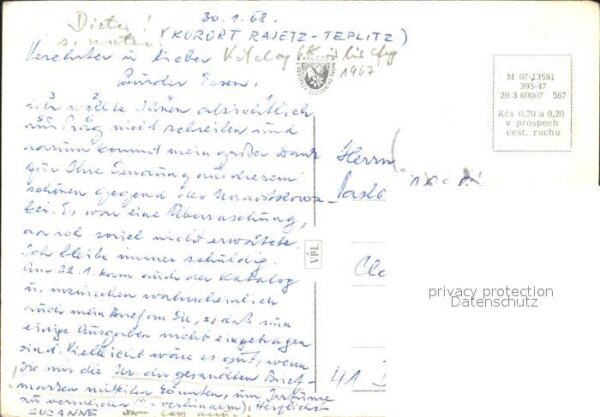 Dieter!
30.1.68.
(KURORT RAJETZ-TEPLITZ)
s. unten!
Verehrter u. lieber
Katalog 68 ist bis
1967
Bruder Esen,
ich wollte Ihnen absichtlich
aus Prag nicht schreiben und
darum kommt mein großer Dank
für Ihre Sendung aus diesem
schönen Gegend der
kei. Es war eine Überraschung,
da ich soviel nicht erwartete.
Ich bleibe immer schuldig.
Am 22.1. kam auch der Katalog
u. inzwischen wahrscheinlich
auch mein Brief an Sie, so daß nun
einige Ausgaben nicht eingetragen
sind. Vielleicht wäre es gut, wenn
Sie mir die Nr. der gesandten Brief-
marken mitteilen könnten, um Irrtümer
zu vermeiden Herzlichst
SUZANNE
M 07-13591
395-47
20 3 60007 567
Kčs 0,70 a 0,20
v prospech
cest. ruchu
VPL
Herrn
Cle
41 D
privacy protection
Datenschutz